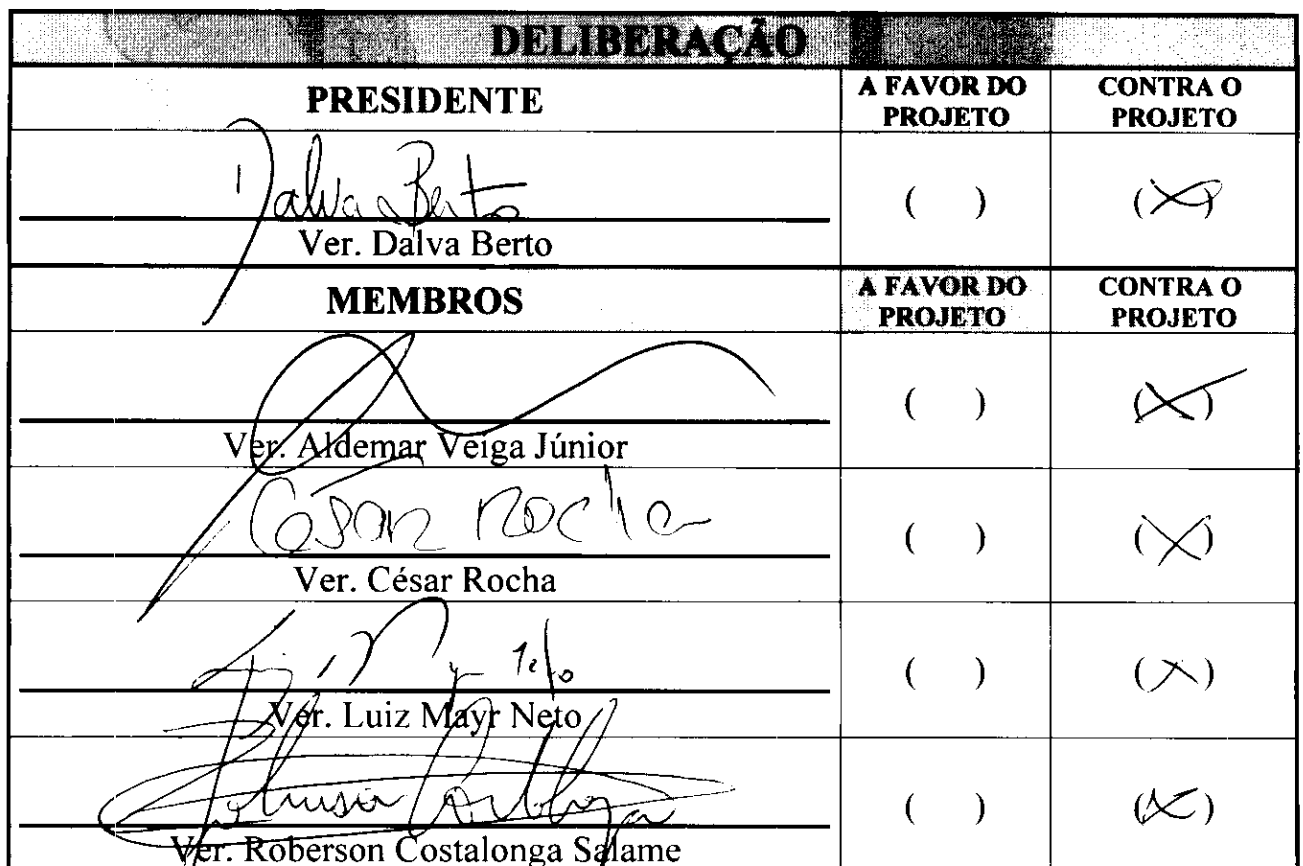 DELIBERAÇÃO
PRESIDENTE A FAVOR DO PROJETO CONTRA O PROJETO
Dalva Berto ( ) (X)
Ver. Dalva Berto
MEMBROS A FAVOR DO PROJETO CONTRA O PROJETO
( ) (X)
Ver. Aldemar Veiga Júnior
César Rocha ( ) (X)
Ver. César Rocha
( ) (X)
Ver. Luiz Mayr Neto
( ) (X)
Ver. Roberson Costalonga Salame